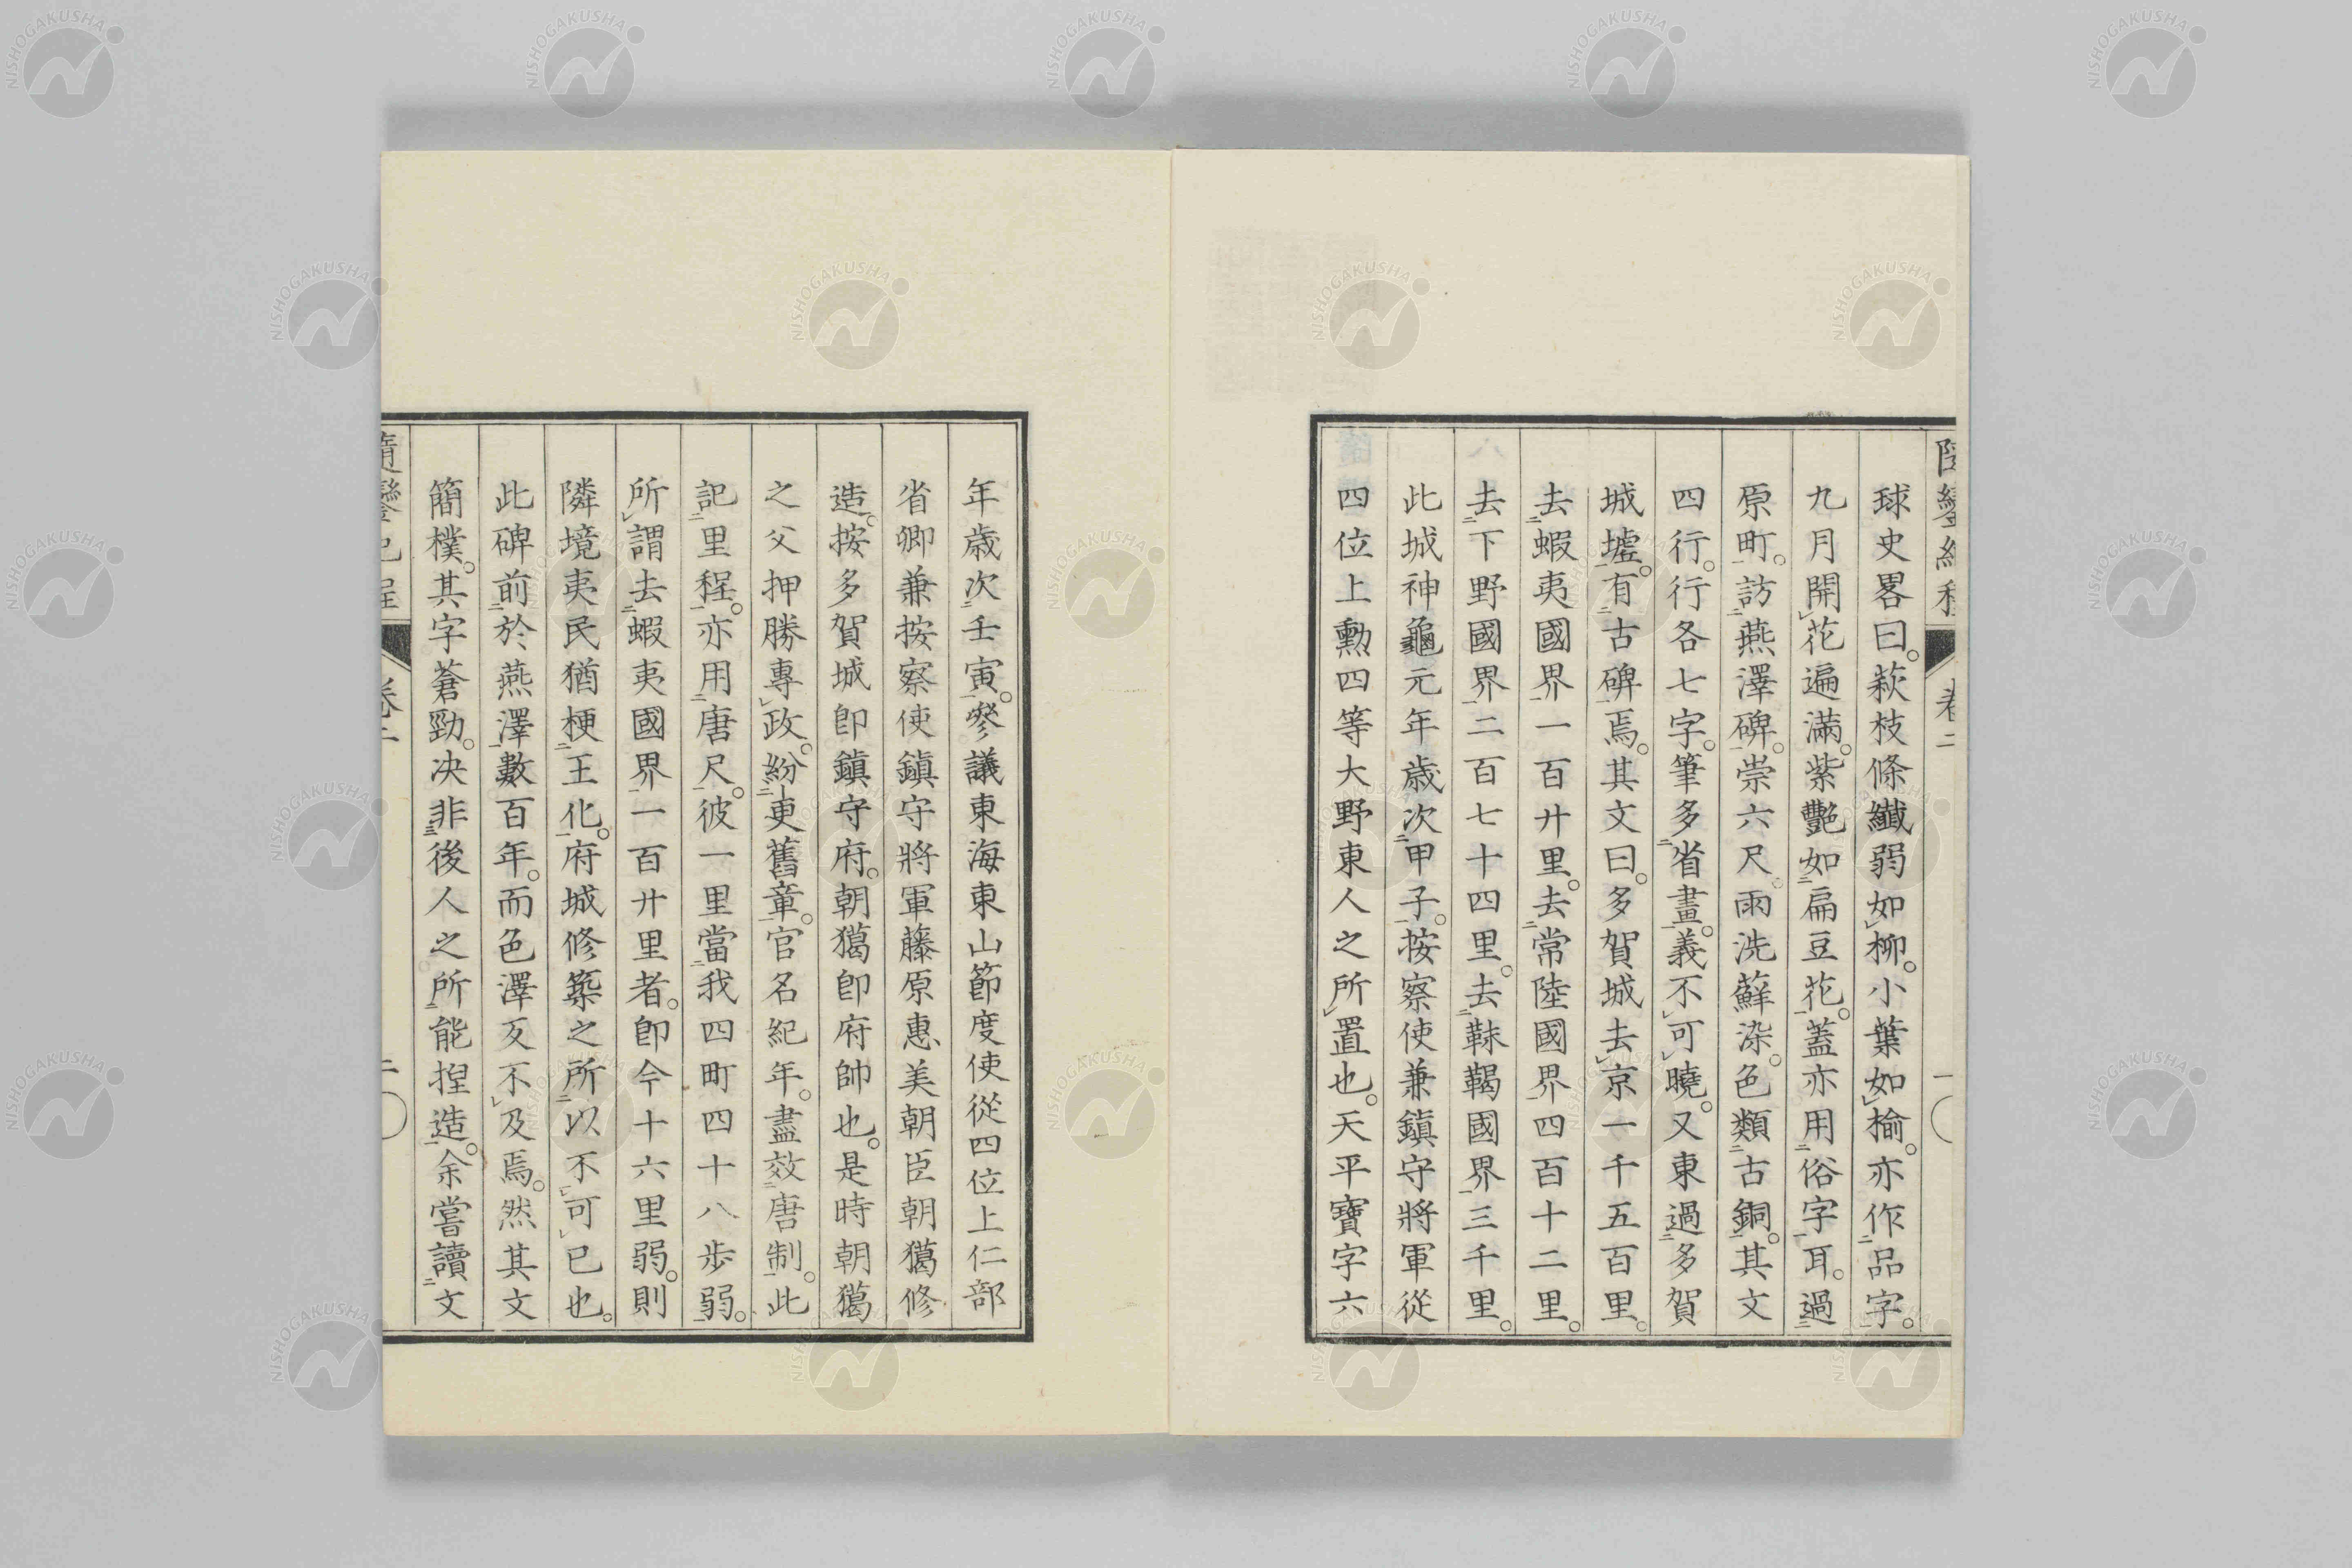 球史畧曰。萩枝條纖弱如柳。小葉如楡。亦作品字。
九月開花遍滿。紫艷如扁豆花。蓋亦用俗字耳。過
原町。訪燕澤碑。崇六尺。雨洗蘚染。色類古銅。其文
四行。行各七字。筆多省畫。義不可曉。又東過多賀
城墟。有古碑焉。其文曰。多賀城去京一千五百里。
去蝦夷國界一百廾里。去常陸國界四百十二里。
去下野國界二百七十四里。去靺鞨國界三千里。
此城神龜元年歳次甲子。按察使兼鎮守將軍從
四位上勳四等大野東人之所置也。天平寶字六
年歳次壬寅。叅議東海東山節度使從四位上仁部
省卿兼按察使鎮守將軍藤原惠美朝臣朝獦修
造。按多賀城卽鎮守府。朝獦卽府帥也。是時朝獦
之父押勝專政。紛更舊章。官名紀年。盡效唐制。此
記里程。亦用唐尺。彼一里當我四町四十八歩弱。
所謂去蝦夷國界一百廾里者。卽今十六里弱。則
隣境夷民猶梗王化。府城修築之所以不可已也。
此碑前於燕澤數百年。而色澤反不及焉。然其文
簡樸。其字蒼勁。决非後人之所能揑造。余嘗讀文
卷二
NISHOGAKUSHA